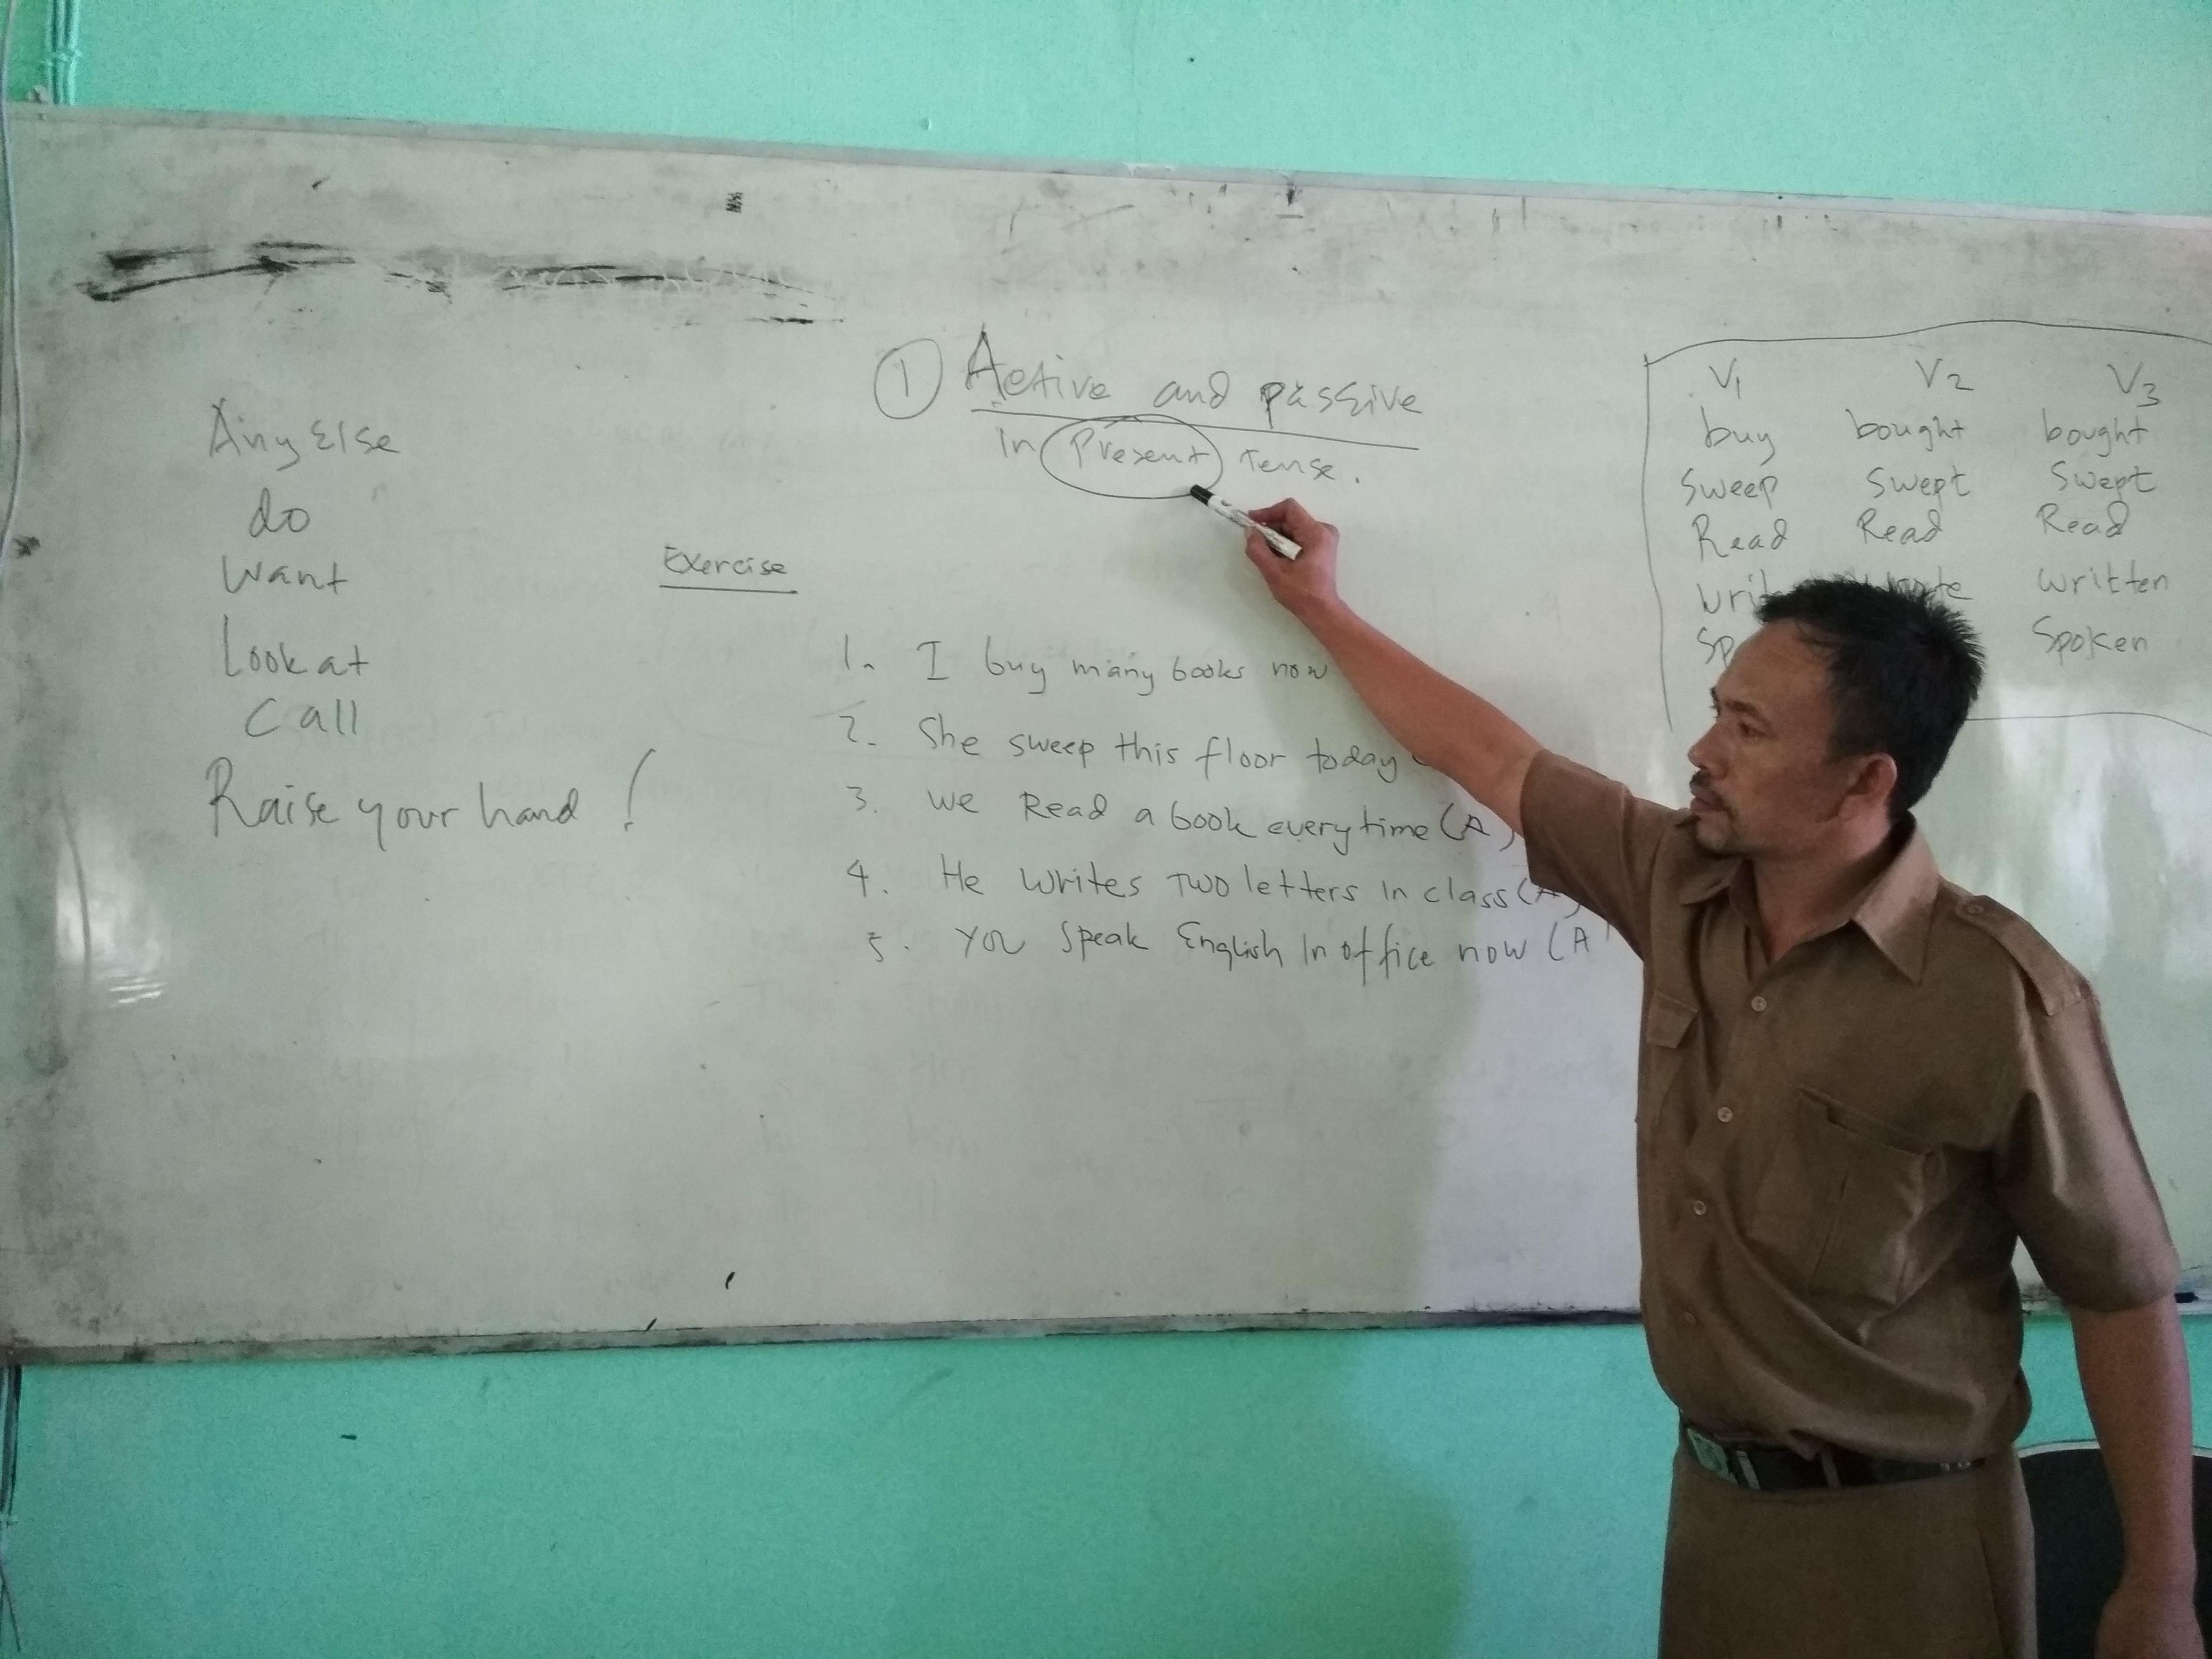 Any Else
do
Want
Look at
Call
Raise your hand !
1 Active and passive
in Present Tense.
Exercise
1. I buy many books now
2. She sweep this floor today
3. We Read a book everytime (A)
4. He writes Two letters in class (A)
5. you speak English in office now (A
V1 V2 V3
buy bought bought
sweep swept swept
Read Read Read
written
Spoken